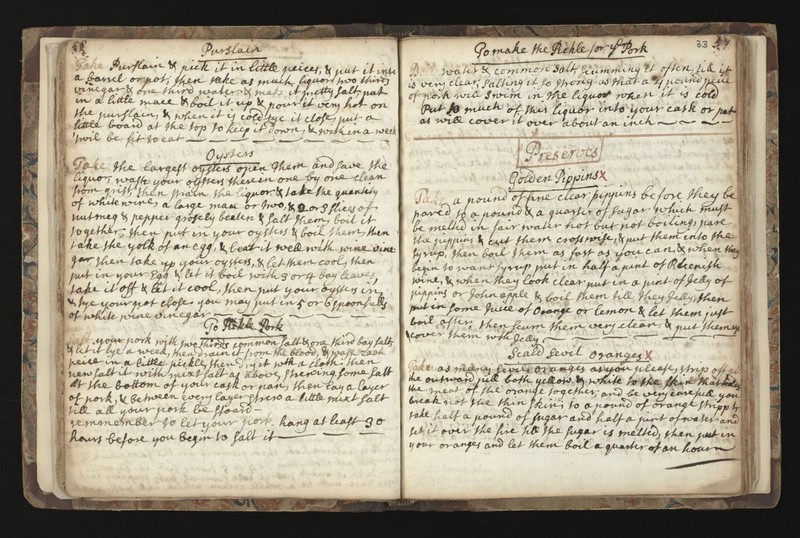 Purslain
Take Purslain & pick it in little peices, & put it into
a barrel or pot, then take as much liquor two thirds
vinegar & one third water & make it pretty salt, put
in a little mace & boil it up & pour it very hot on
the purslain, & when it is cold tye it close, put a
little board at the top to keep it down, & with in a week
twil be fit to eat
Oysters
Take the largest oysters open them and save the
liquor, wash your oysters therein one by one clean
from gritt, then strain the liquor & take the quantity
of white wine, a large mace or two, & 2 or 3 slices of
nutmeg & pepper grosely beaten & salt them, boil it
together, then put in your oysters & boil them, then
take the yolk of an egg, & beat it well with wine vine
gar then take up your oysters, & let them cool, then
put in your Egg & let it boil with 3 or 4 bay leaves,
take it off & let it cool, then put your oysters in,
& tye your pot close. you may put in 5 or 6 spoonfulls
of white wine vinegar
To Pickle Pork
your pork with two thirds common salt & one third bay salt,
& let it lye a week, then drain it from the blood, & wash each
peice in a little pickle, then dry it with a cloth: then
new salt it with mixt salt as above, strewing some salt
at the bottom of your cask or pan, then lay a layer
of pork, & between every layer strew a little mixt salt
till all your pork be stoard
rememember to let your pork hang at least 30
hours before you begin to salt it
To make the Pickle for ye Pork
33
57
Boil water & common salt, scumming it often till it
is very clear, salting it so strong as that a 4 pound peice
of pork will swim in the liquor when it is cold
Put so much of this liquor into your cask or pot
as will cover it over about an inch
Preserves
Golden Pippins X
Take a pound of fine clear pippins before they be
pared to a pound & a quarter of sugar which must
be melted in fair water hot but not boiling; pare
the pippins & cut them crosswise, & put them into the
syrup, then boil them as fast as you can, & when they
begin to want syrup put in half a pint of Rheenish
wine, & when they look clear put in a pint of Jelly of
pippins or John apple & boil them till they Jelly, then
put in some Juice of orange or lemon & let them just
boil after; then scum them very clear & put them up
& cover them with Jelly
Scald Sevil oranges X
Take as many Sevil oranges as you please, strip off all
the outward pill both yellow & white to the skin that holds
the meat of the orange together, and be very carefull you
break not the thin skin; to a pound of orange stripp'd
take half a pound of sugar and half a pint of water and
set it over the fire till the sugar is melted, then put in
your oranges and let them boil a quarter of an hour